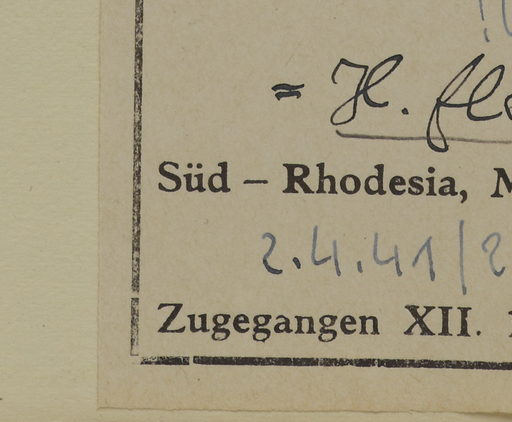 = H.
Süd – Rhodesia,
2.4.41/2
Zugegangen XII.